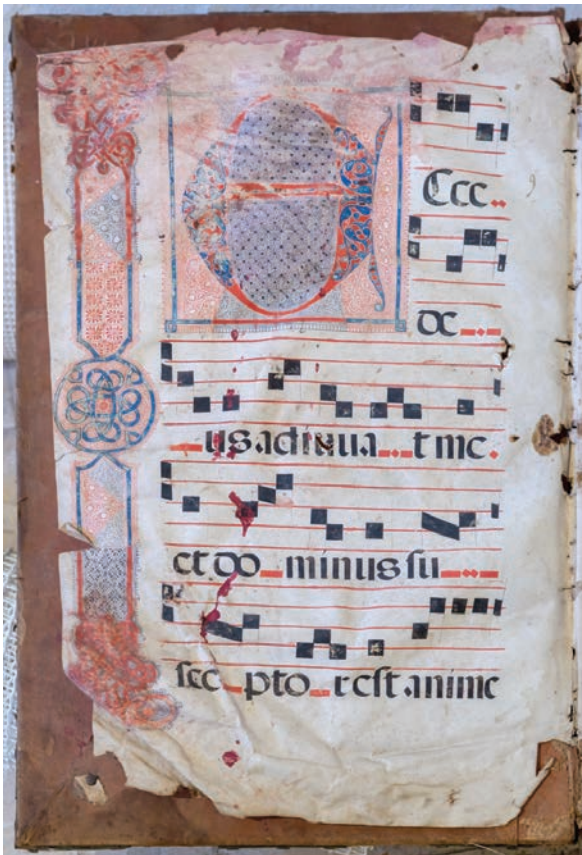 Ecce
de
us adiuua t me
et do minus su
sce pto r est anime